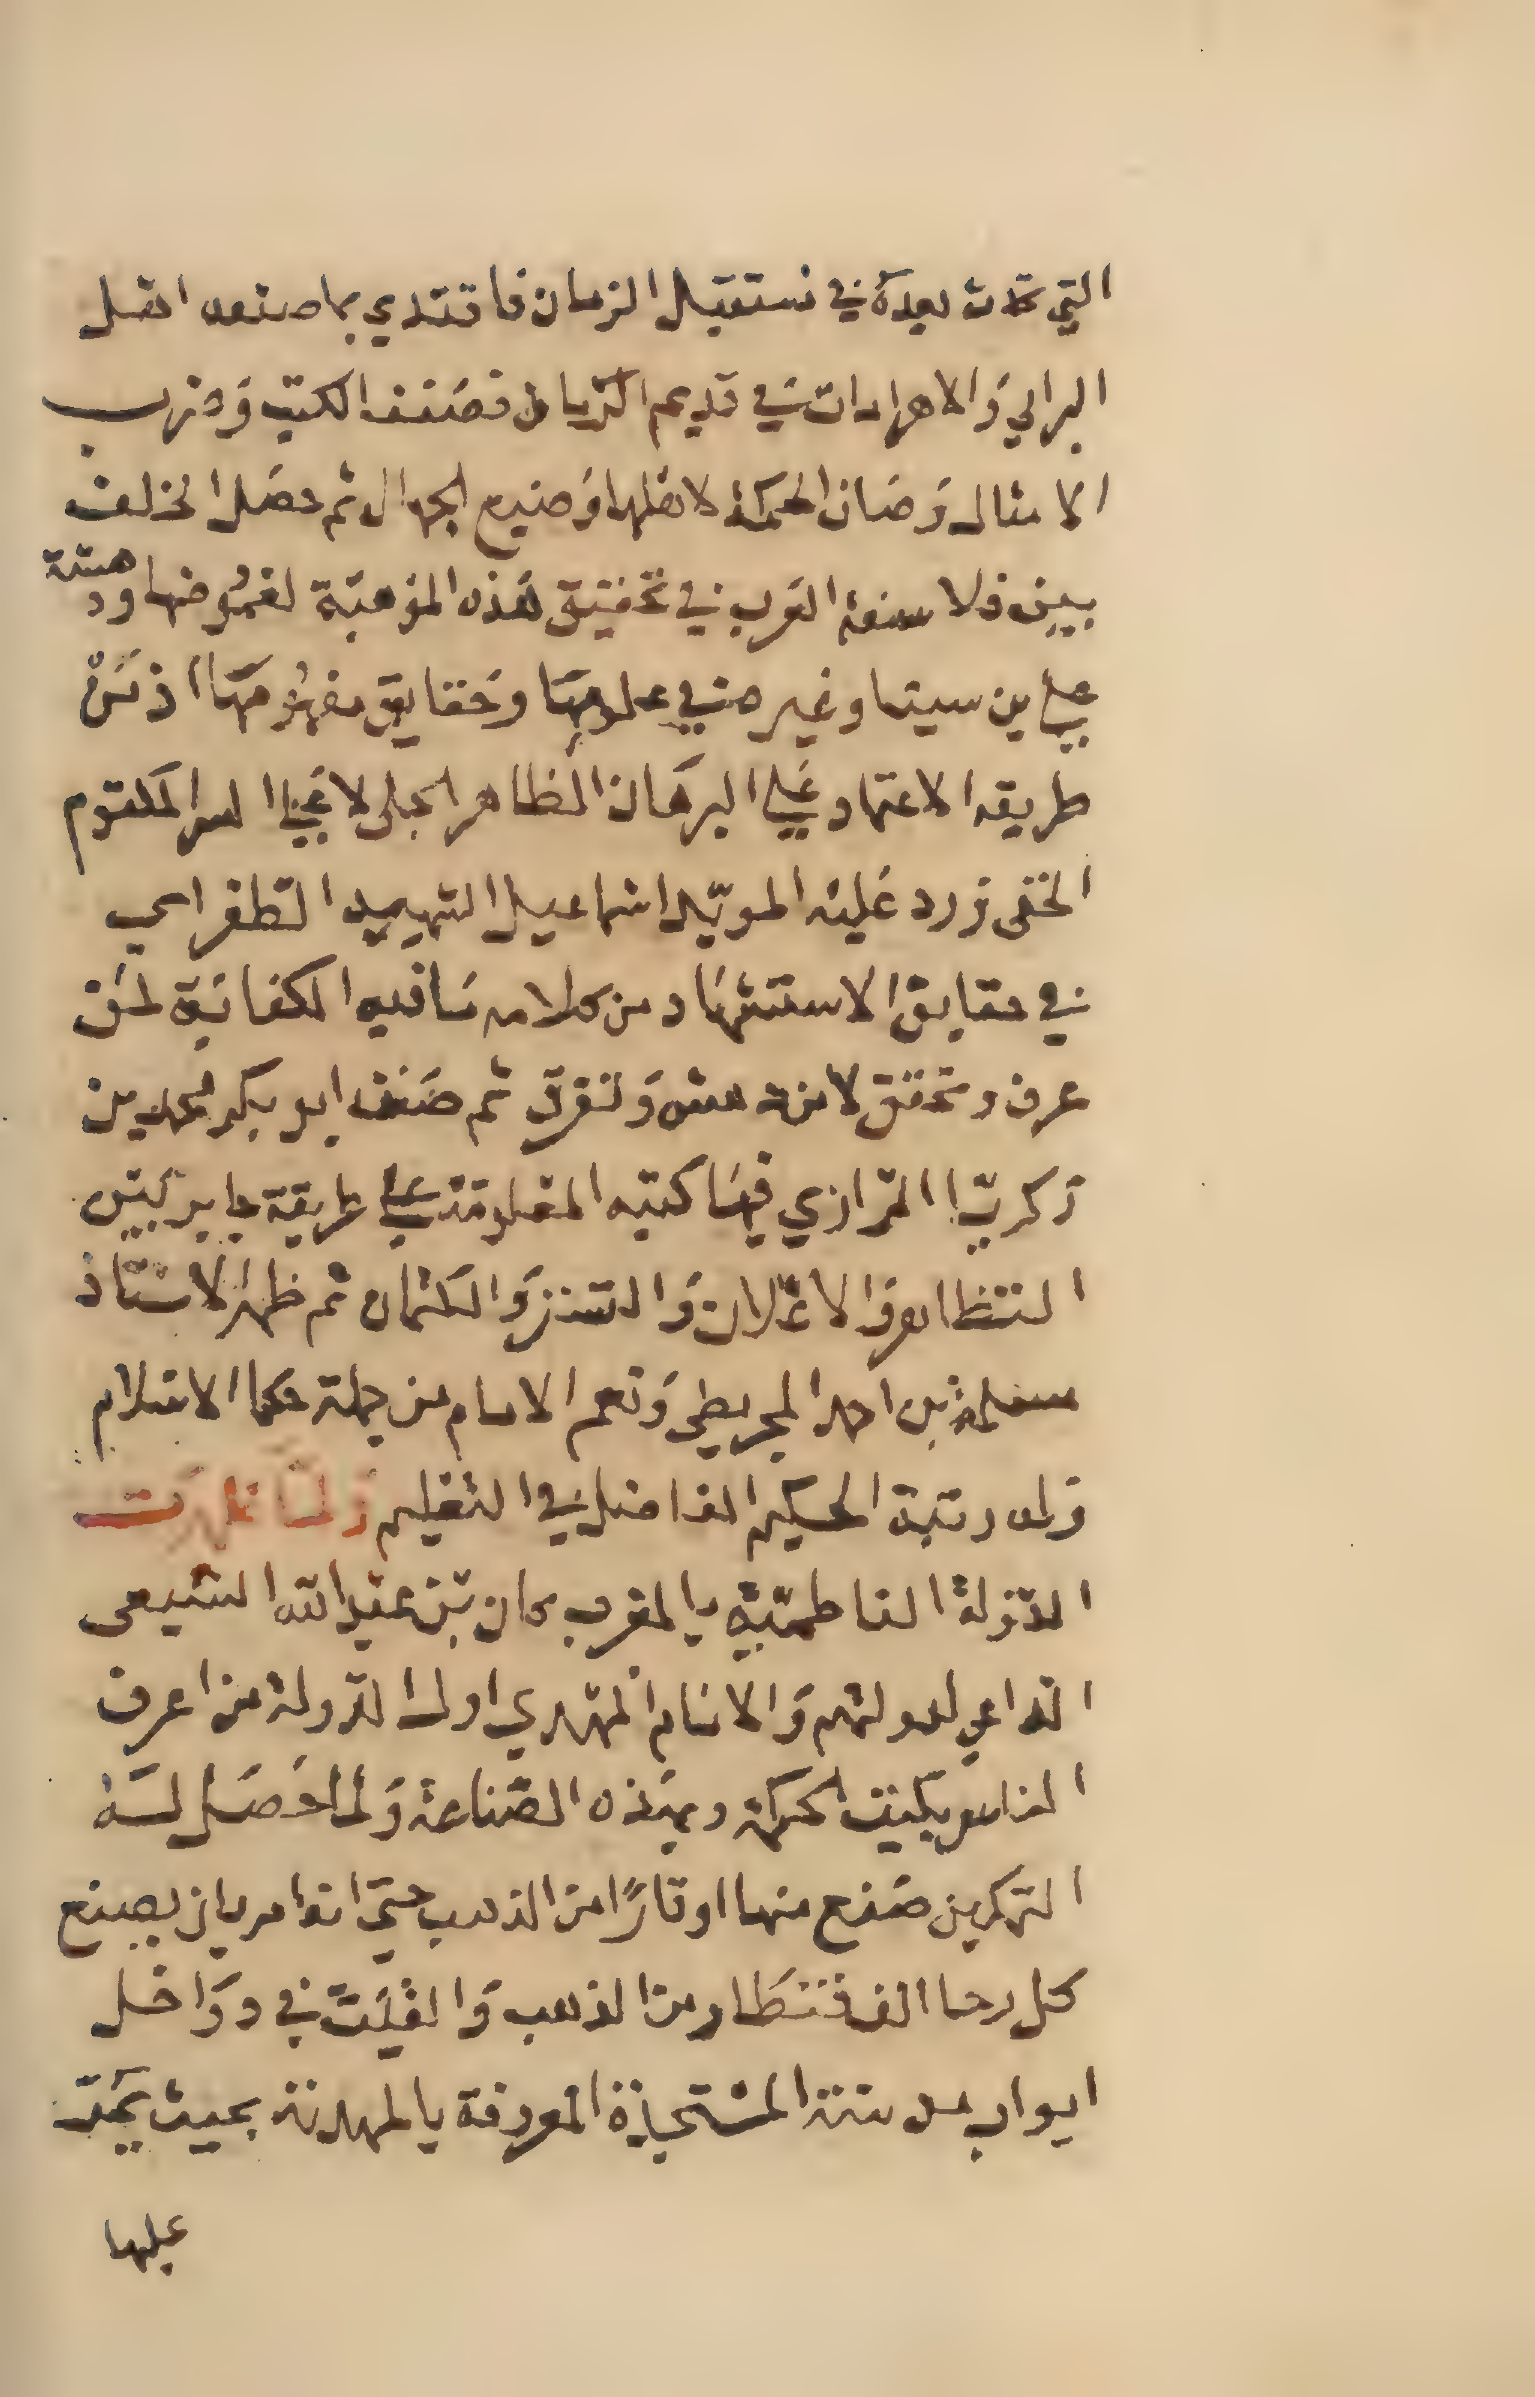 التي تحدث بعده في مستقبل الزمان فاقتدي بما صنعه اهل
البرابي والاهرامات في قديم الزمان فصنف الكتب وضرب
الامثال وصان الحكمة لاهلها وضيع الجهال ثم حصل الخلف
بين فلاسفة العرب في تحقيق هذه الموهبة لغموضها ودهشة
علي بن سينا وغيره في علومها وحقايق مفهومها اذ من
طريقه الاعتماد علي البرهان الظاهر الجلي لا علي السر المكتوم
الخفي ورد عليه المويد اسماعيل الشهيد الطغراي
في حقايق الاستشهاد من كلامه ما فيه الكفاية لمن
عرف وتحقق لا من وتفرق ثم صنف ابو بكر محمد بن
زكريا الرازي فيها كتبه المعلومة علي طريقة جابر بين
التظاهر والاعلان والتستر والكتمان ثم ظهر الاستاذ
مسلمة بن احمد المجريطي ونعم الامام من جملة حكما الاسلام
وله رتبة الحكيم الفاضل في التعليم ولما ظهرت
الدولة الفاطمية بالمغرب كان بن عبد الله الشيعي
الداعي لدولتهم والامام المهدي اول الدولة من اعرف
الناس بكيت الحكمة وبهذه الصناعة ولما حصل له
التمكين صنع منها اوتارا من الذهب حتى انه امر بان يصنع
كل رحا الف قنطار من الذهب والقيت في دواخل
ابواب مدينته المستجدة المعروفة بالمهدية بحيث يمر
عليها